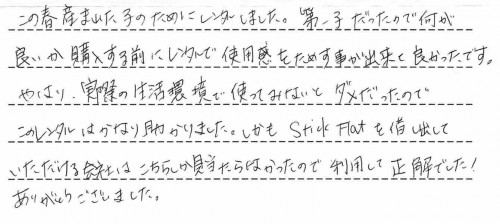 この春産まれた子のためにレンタルしました。第一子だったので何が
良いか購入する前にレンタルで使用感をためす事が出来て良かったです。
やはり、実際の生活環境で使ってみないとダメだったので
このレンタルはかなり助かりました。しかも Stick Flatを借し出して
いただける会社はこちらしか見当たらなかったので 利用して正解でした!
ありがとうございました。